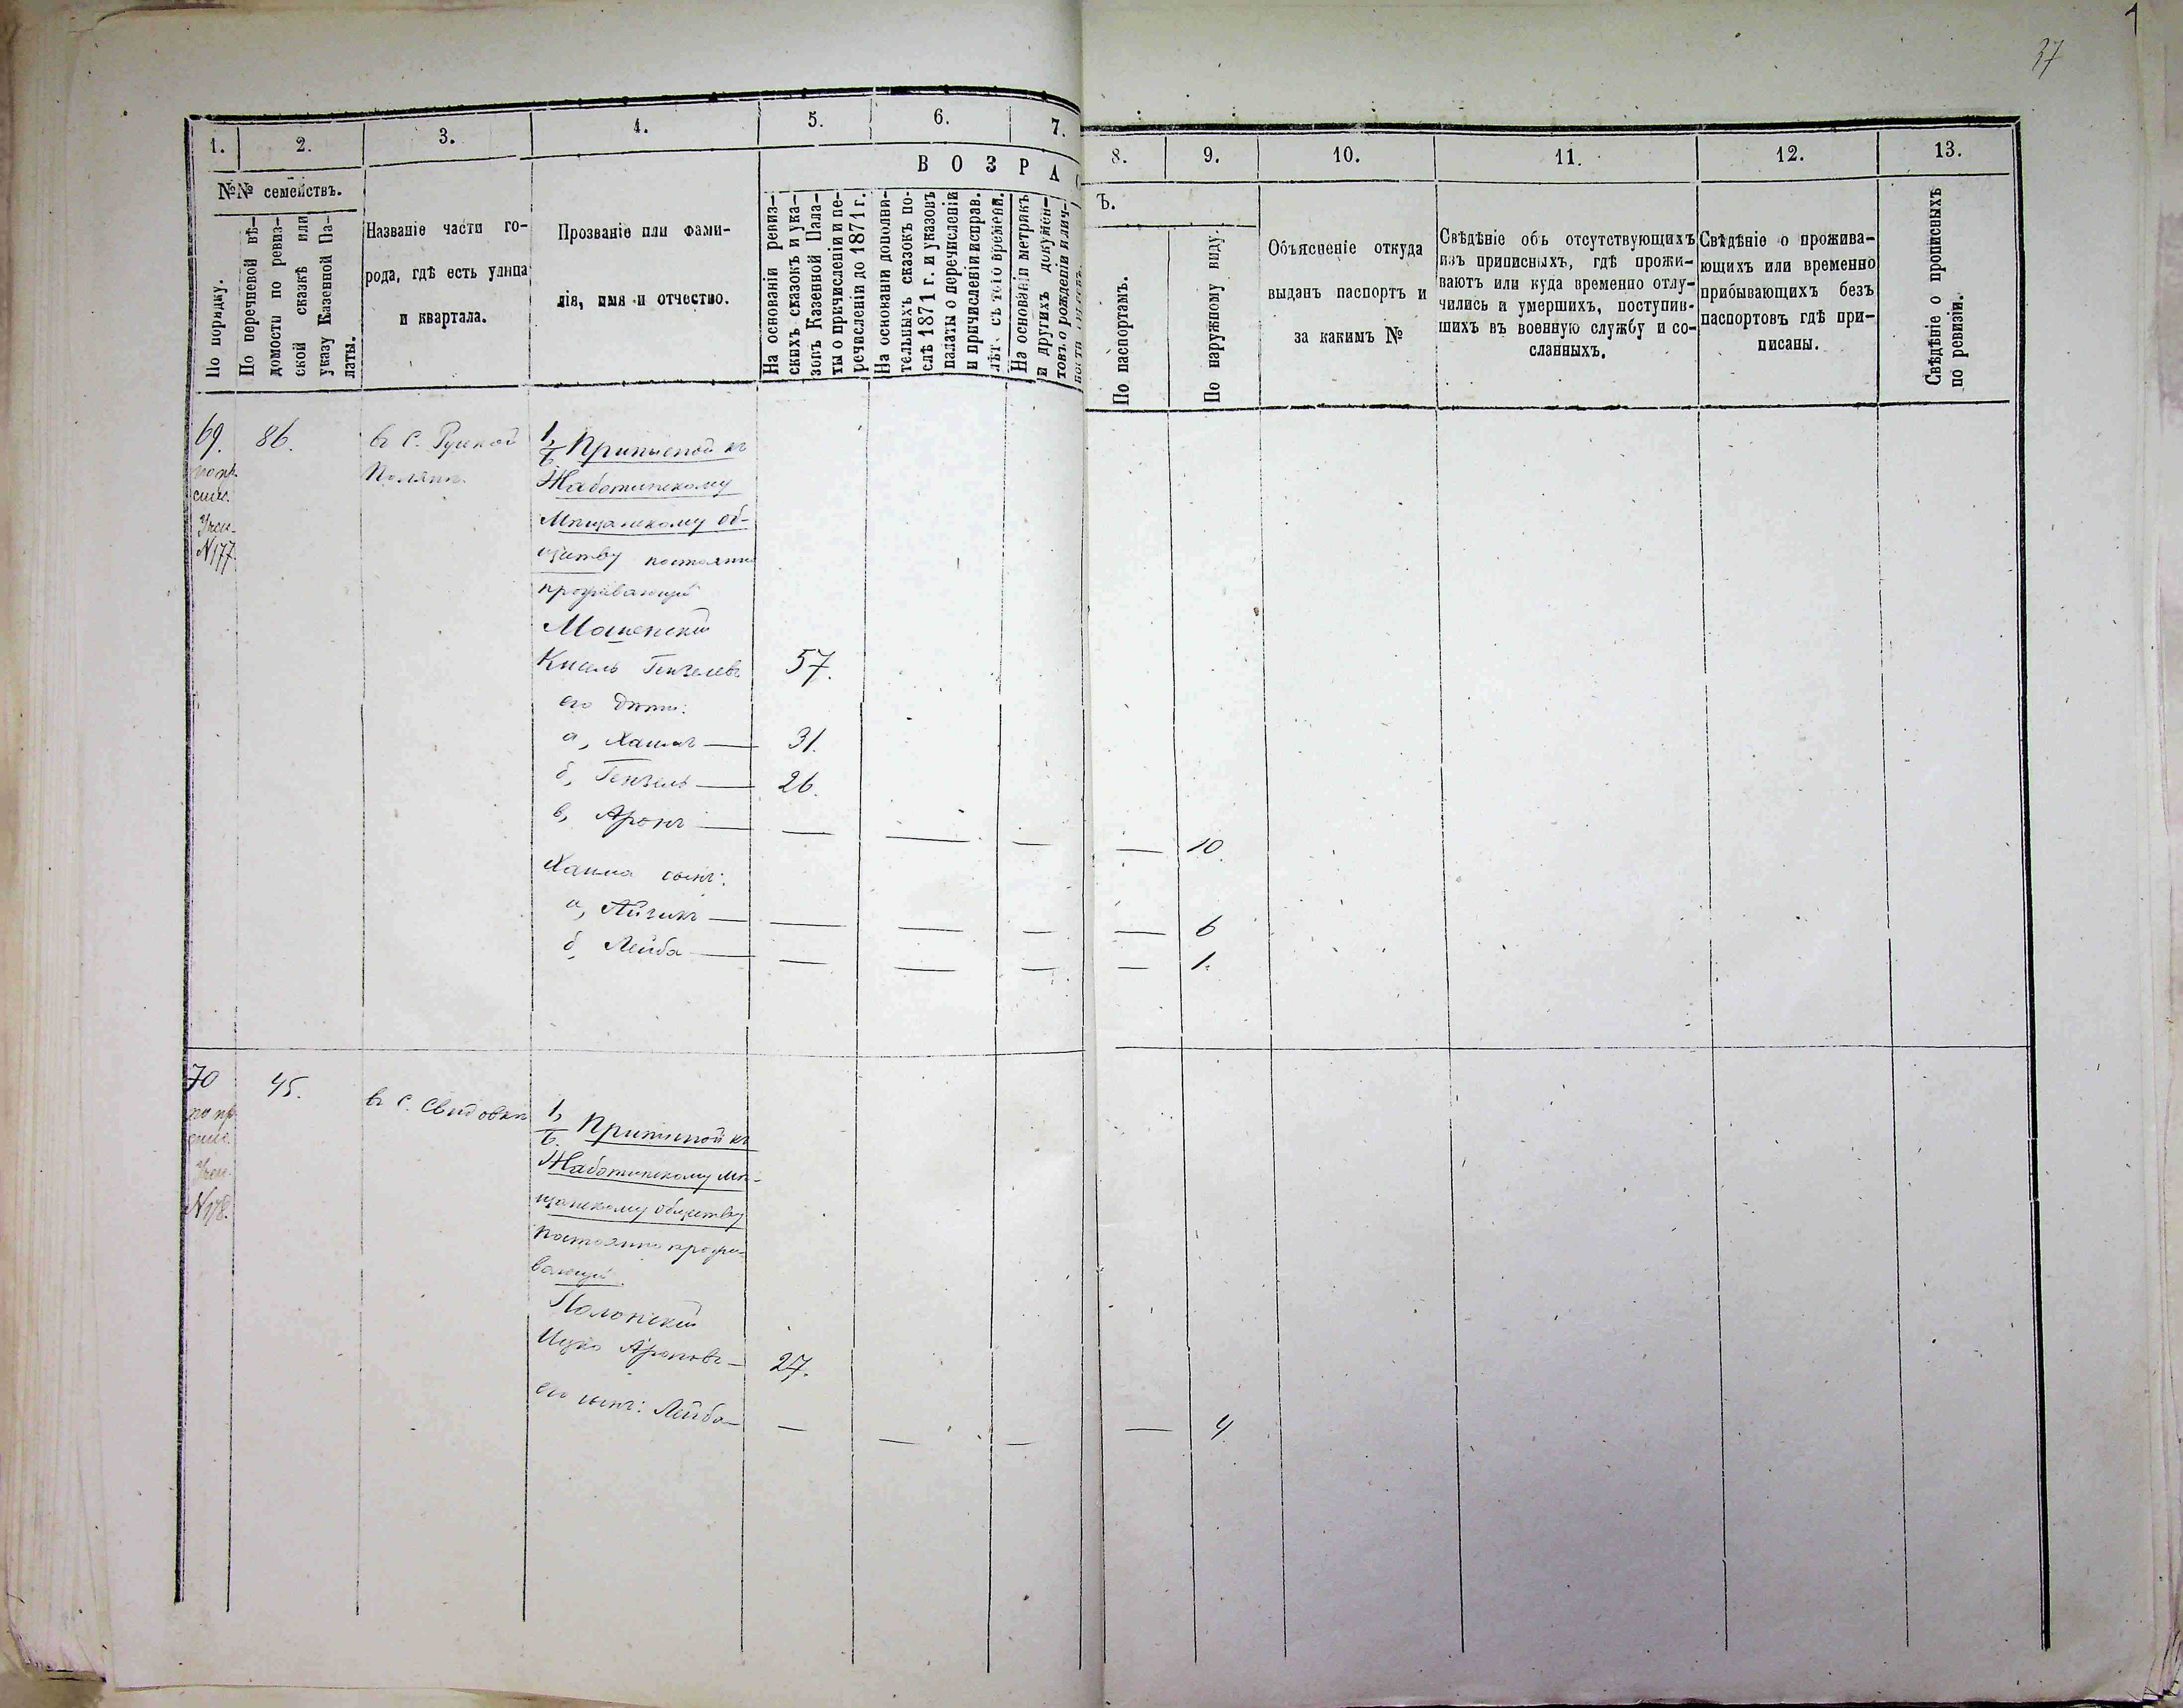 37
1.
2.
3.
4.
5.
6.
7.
8.
9.
10.
11.
12.
13.
№№ семействъ.
По порядку.
По перечневой вѣ-
домости по ревиз-
ской сказкѣ или
указу Казенной Па-
латы.
Названіе части го-
рода, гдѣ есть улица
и квартала.
Прозваніе или фами-
лія, имя и отчество.
В О З Р А С
Ъ.
На основаніи ревиз-
скихъ сказокъ и ука-
зовъ Казенной Пала-
ты о причисленіи и пе-
речисленіи до 1871 г.
На основаніи дополни-
тельныхъ сказокъ по-
слѣ 1871 г. и указовъ
палаты о перечисленіи
и причисленіи исправ.
лѣт. съ того времени.
На основаніи метрикъ
и другихъ докумен-
товъ о рожденіи и лич-
По паспортамъ.
По наружному виду.
Объясненіе откуда
выданъ паспортъ и
за какимъ №
Свѣдѣніе объ отсутствующихъ
изъ приписныхъ, гдѣ прожи-
ваютъ или куда временно отлу-
чились и умершихъ, поступив-
шихъ въ военную службу и со-
сланныхъ.
Свѣдѣніе о прожива-
ющихъ или временно
прибывающихъ безъ
паспортовъ гдѣ при-
писаны.
Свѣдѣніе о прописныхъ
по ревизіи.
69.
86.
въ С. Руской
Полянѣ.
N 177.
Приписной къ
Жаботинскому
Мѣщанскому об-
ществу постоянно
проживающій
Мошенскій
Кисель Гензелевъ
57.
его дѣти:
а, Хаимъ — 31.
б, Гензель — 26.
в, Аронъ — — — — — 10.
Хаима сынъ:
а, Айзикъ — — — — — 6
б, Лейба — — — — — 1.
70
45.
въ С. Свидовкѣ
N 178.
Приписной къ
Жаботинскому мѣ-
щанскому обществу
постоянно прожи-
вающій.
Полонскій
Ицко Ароновъ — 27.
его сынъ: Лейба — — — — — 4